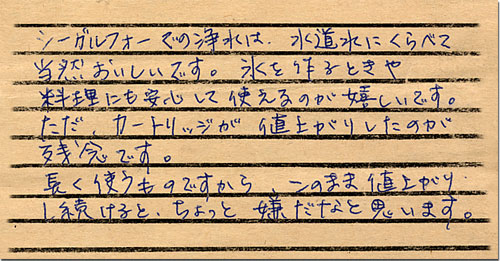 シーガルフォーでの浄水は、水道水にくらべて
当然おいしいです。氷を作るときや
料理にも安心して使えるのが嬉しいです。
ただ、カートリッジが値上がりしたのが
残念です。
長く使うものですから、このまま値上がり
し続けると、ちょっと嫌だなと思います。